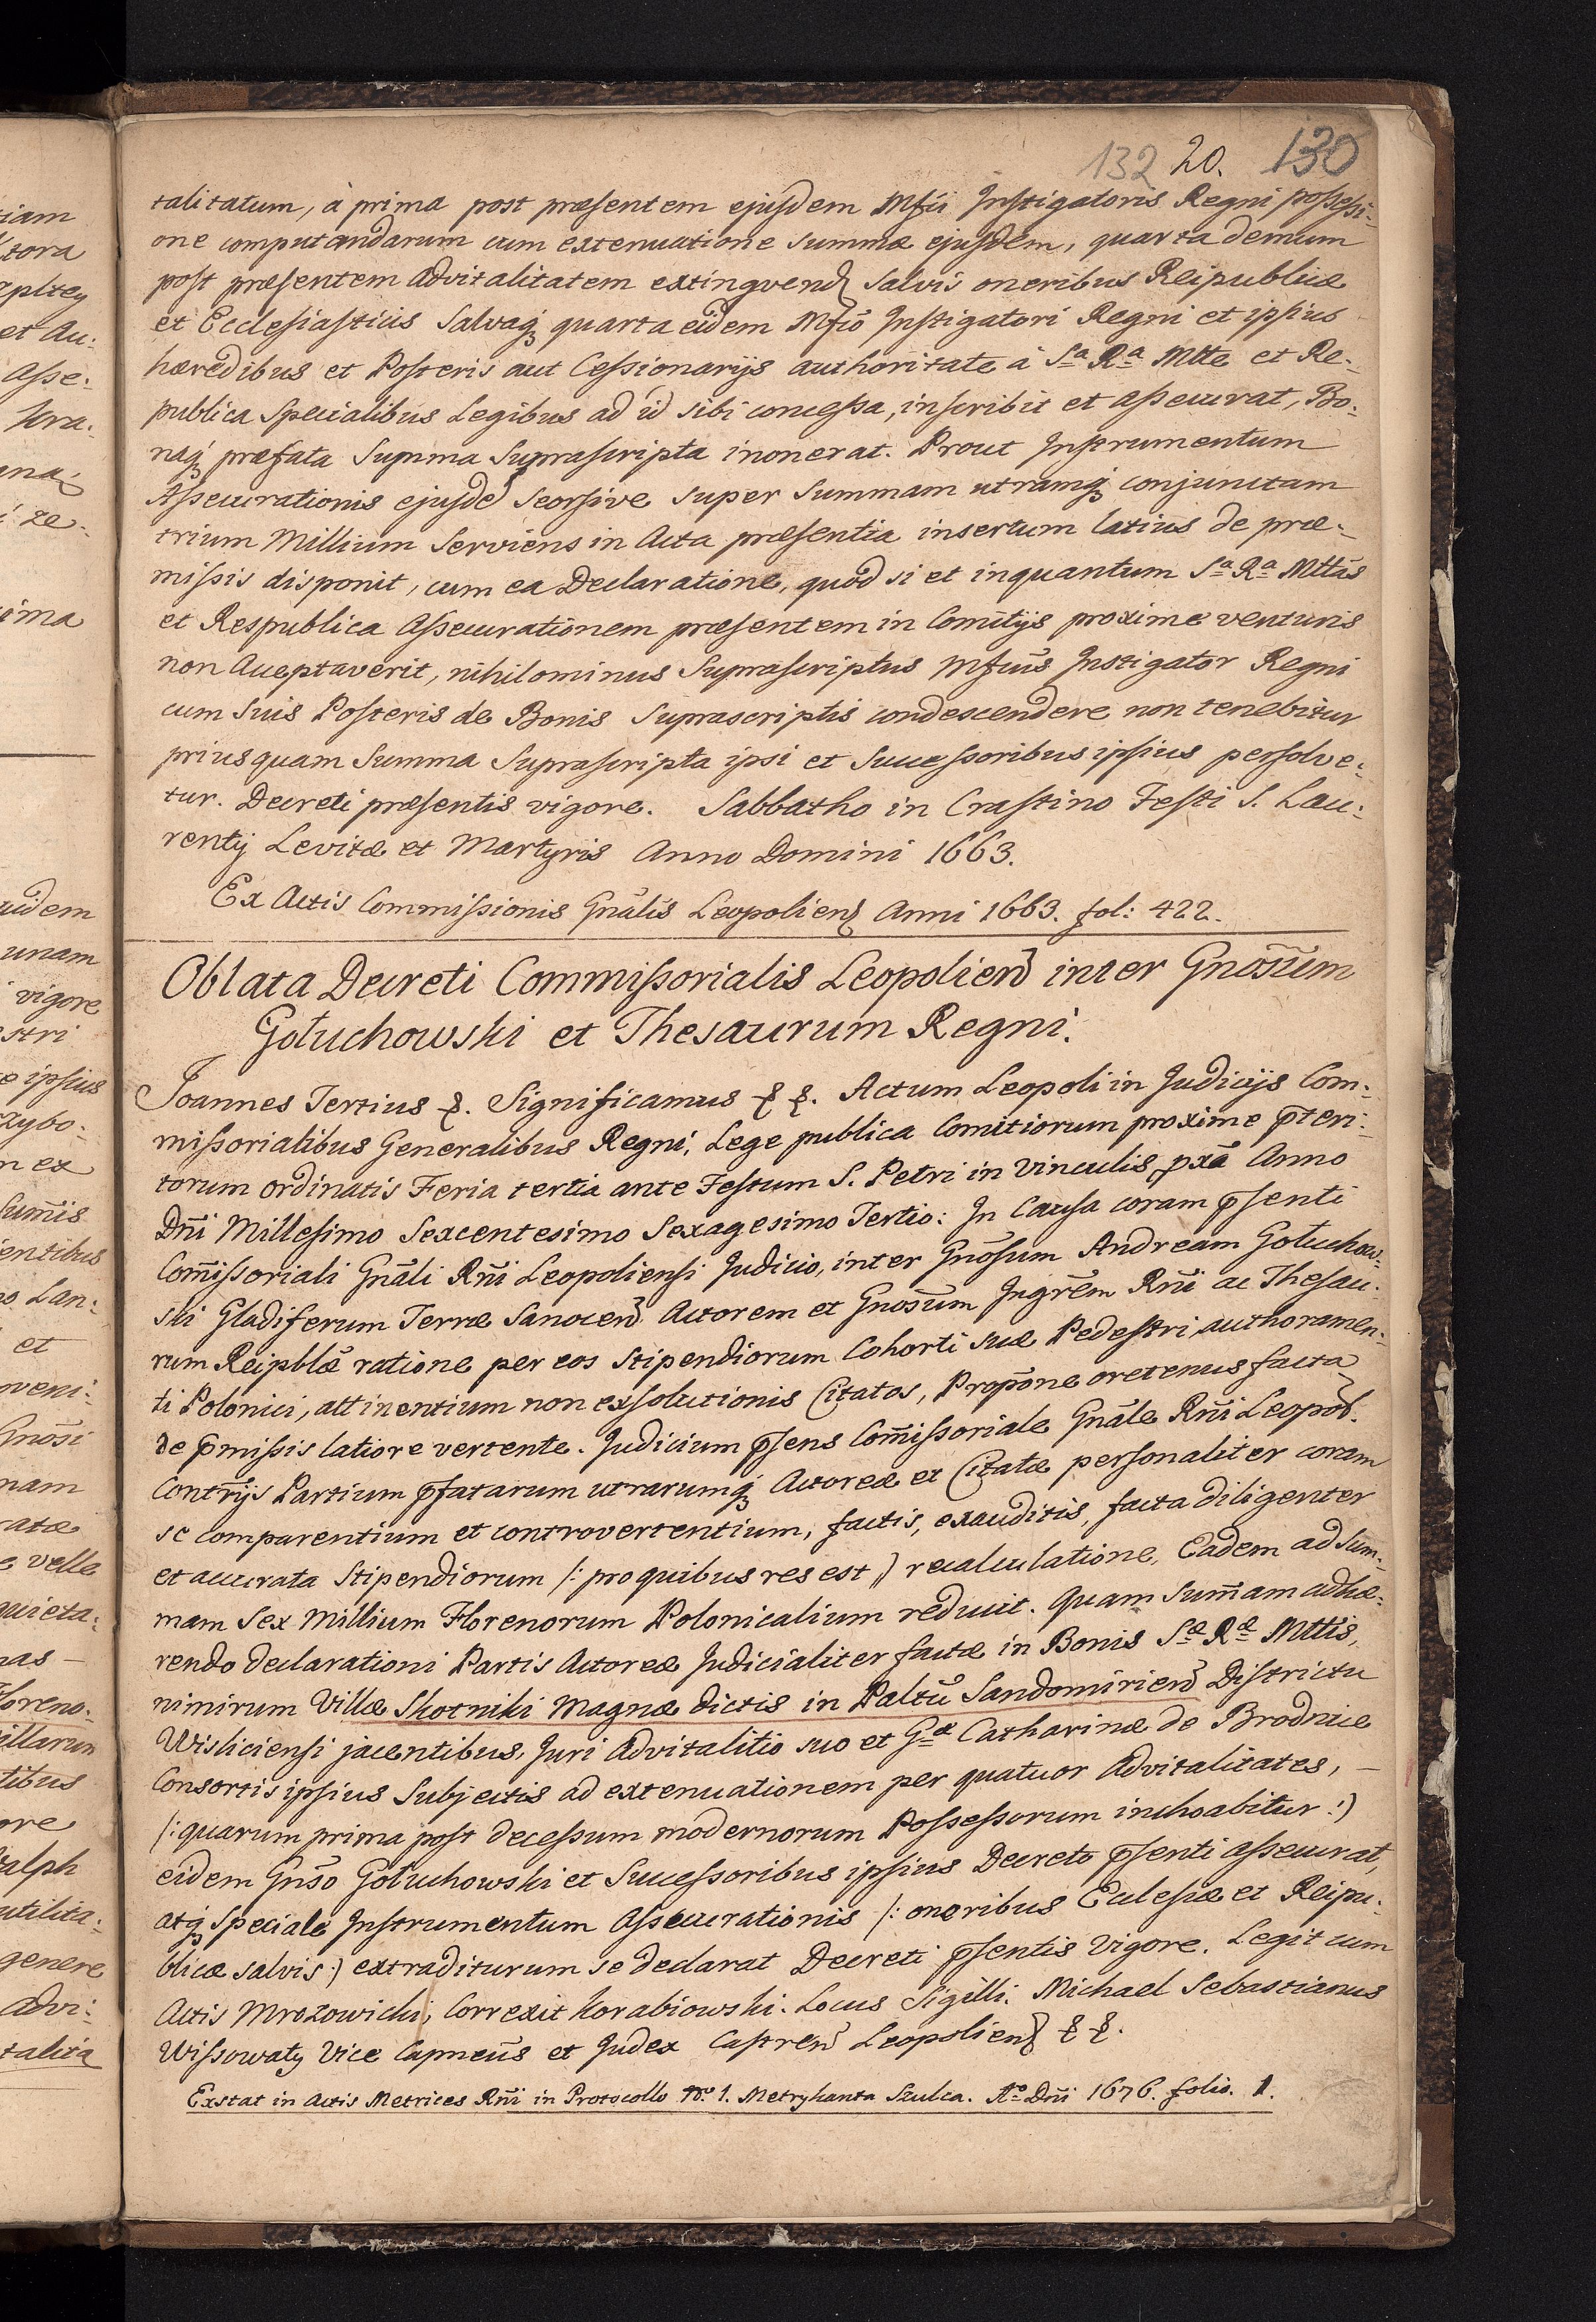 132 20. 130
talitatum, à prima post præsentem ejusdem Mfci Instigatoris Regni possessi-
one computandarum cum extenuatione summæ ejusdem, quarta demum
post præsentem advitalitatem extingvend salvis oneribus Reipublicæ
et Ecclesiasticis Salvaq quarta eidem Mfco Instigatori Regni et ipsius
hæredibus et Posteris aut Cessionarijs authoritate à Sa Ra Mtte et Re-
publica Specialibus Legibus ad id sibi concessa, inscribit et assecurat, Bo-
naq præfata Summa Suprascripta inonerat. Prout Instrumentum
Assecurationis ejusde Seorsive super Summam utramq conjunctam
trium Millium Serviens in Acta præsentia insertum latius de præ-
missis disponit, cum ea Declaratione, quod si et inquantum Sa Ra Mttas
et Respublica Assecurationem præsentem in Comitijs proxime venturis
non Acceptaverit, nihilominus Suprascriptus Mfcus Instigator Regni
cum Suis Posteris de Bonis Suprascriptis condescendere non tenebitur
priusquam Summa Suprascripta ipsi et Successoribus ipsius persolve-
tur. Decreti præsentis vigore. Sabbatho in Crastino Festi S. Lau-
rentij Levitæ et Martyris Anno Domini 1663.
Ex Actis Commissionis Gnalis Leopolien Anni 1663. fol: 422.
Oblata Decreti Commissorialis Leopolien inter Gnosum
Gołuchowski et Thesaurum Regni.
Joannes Tertius &. Significamus & &. Actum Leopoli in Judicijs Com-
missorialibus Generalibus Regni, Lege publica Comitiorum proxime pteri-
torum ordinatis Feria tertia ante Festum S. Petri in Vinculis pxa Anno
Dni Millesimo Sexcentesimo Sexagesimo Tertio: In Causa coram psenti
Comissoriali Gnali Rni Leopoliensi Judicio, inter Gnosum Andream Gołuchow-
ski Gladiferum Terræ Sanocen Actorem et Gnosum Ingrem Rni ac Thesau-
rum Reipblæ ratione per eos Stipendiorum Cohorti suæ Pedestri authoramen-
ti Polonici, attinentium non exsolutionis Citatos, Propone oretenus facta
de pmissis latiore vertente. Judicium psens Comissoriale Gnale Rni Leopol.
Contrijs Partium pfatarum utrarumq Actoreæ et Citatæ personaliter coram
se comparentium et controvertentium, factis, exauditis, facta diligenter
et accurata Stipendiorum /: pro quibus res est :/ recalculatione, Eadem ad Sum-
mam Sex Millium Florenorum Polonicalium reducit. Quam Sumam adhæ-
rendo declarationi Partis Actoreæ Judicialiter factæ in Bonis Sæ Ræ Mttis,
nimirum Villæ Skotniki Magnæ dictis in Paltu Sandomirien Districtu
Wisliciensi jacentibus, Juri Advitalitio suo et Gæ Catharinæ de Brodnice
Consortis ipsius Subjectis ad extenuationem per quatuor Advitalitates, –
/: quarum prima post decessum modernorum Possessorum inchoabitur :)
eidem Gnso Gołuchowski et Successoribus ipsius Decreto psenti assecurat,
atq Speciale Instrumentum Assecurationis /: oneribus Eclesiæ et Reipu-
blicæ salvis :) extraditurum se declarat Decreti psentis Vigore. Legit cum
Actis Mrozowicki, Correxit Korabiowski. Locus Sigilli. Michael Sebastianus
Wissowaty Vice Capneus et Judex Castren Leopolien & &.
Exstat in Actis Metrices Rni in Protocollo No. 1. Metrykanta Szulca. Ao Dni 1676. folio. 1.